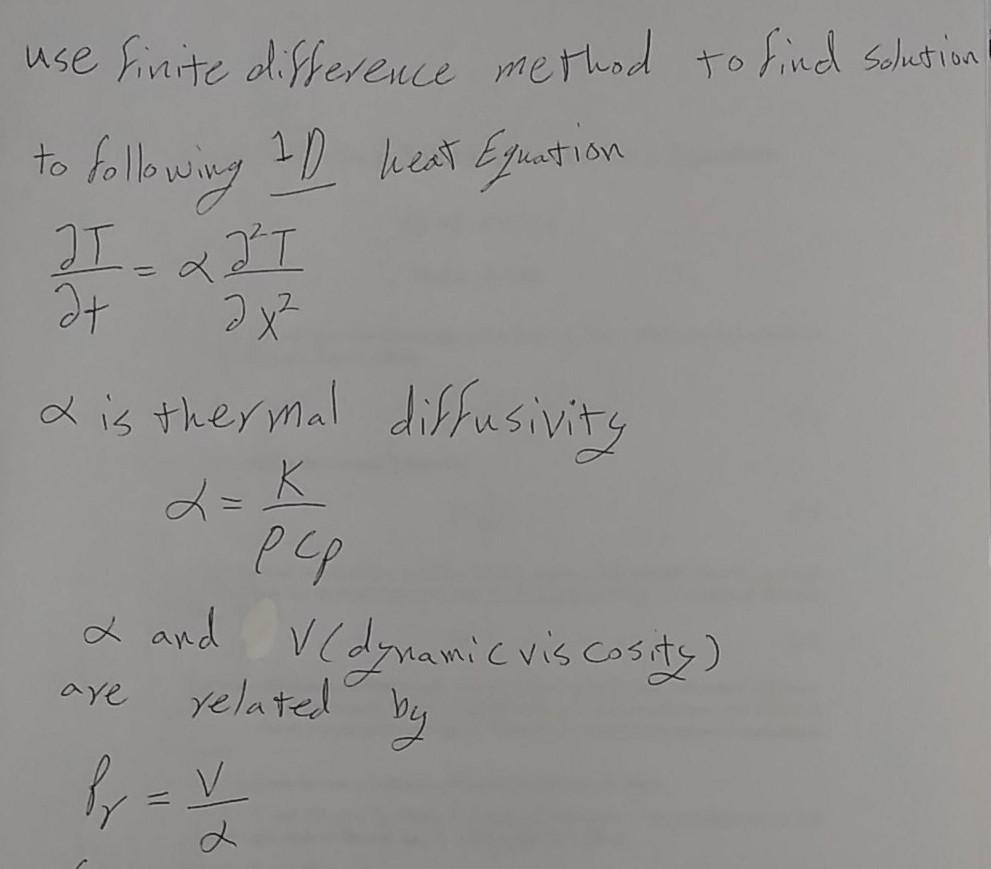 use finite difference method to find solution
to following 1D heat Equation
∂T/∂t = α ∂²T/∂x²
α is thermal diffusivity
α = K/ρcp
α and ν (dynamic viscosity)
are related by
Pr = ν/α